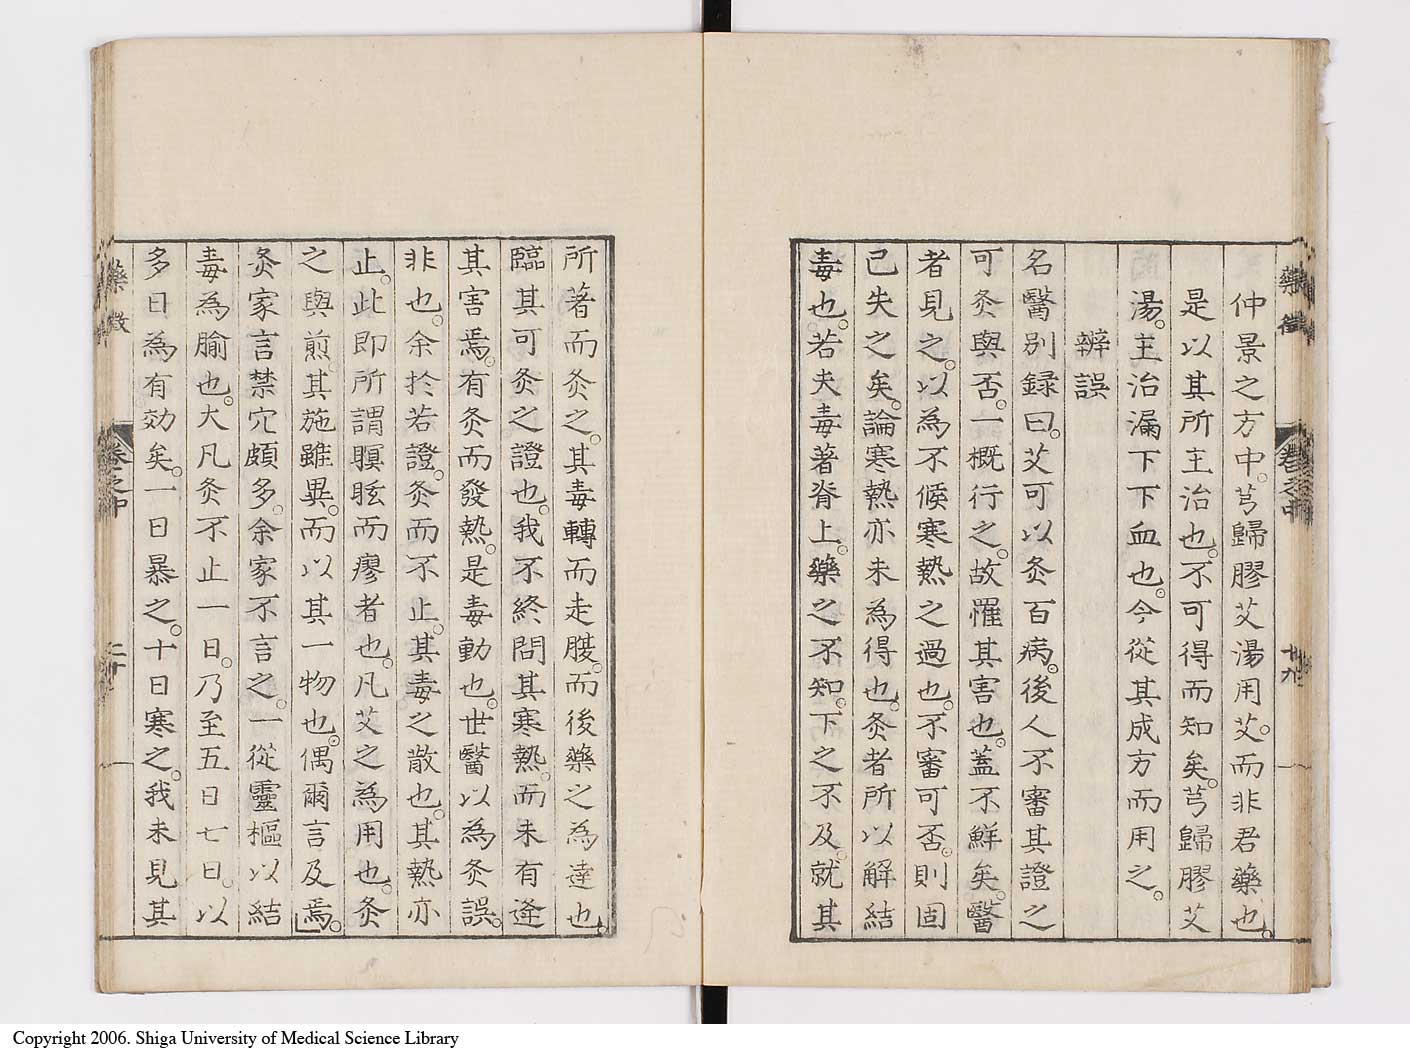 仲景之方中。芎歸膠艾湯用艾。而非君藥也。
是以其所主治也。不可得而知矣。芎歸膠艾
湯。主治漏下下血也。今從其成方而用之。
辨誤
名醫別録曰。艾可以灸百病。後人不審其證之
可灸與否。一概行之。故罹其害也。蓋不鮮矣。醫
者見之。以為不候寒熱之過也。不審可否。則固
已失之矣。論寒熱亦未為得也。灸者所以解結
毒也。若夫毒著脊上。藥之不知。下之不及。就其
藥徵
卷之中
廿九
所著而灸之。其毒轉而走腹。而後藥之為達也。
臨其可灸之證也。我不終問其寒熱。而未有逢
其害焉。有灸而發熱。是毒動也。世醫以為灸誤。
非也。余於若證。灸而不止。其毒之散也。其熱亦
止。此即所謂瞑眩而瘳者也。凡艾之為用也。灸
之與煎。其施雖異。而以其一物也。偶爾言及焉。
灸家言禁穴頗多。余家不言之。一從靈樞以結
毒為腧也。大凡灸不止一日。乃至五日七日。以
多日為有効矣。一日暴之。十日寒之。我未見其
藥徵
卷之中
Copyright 2006. Shiga University of Medical Science Library